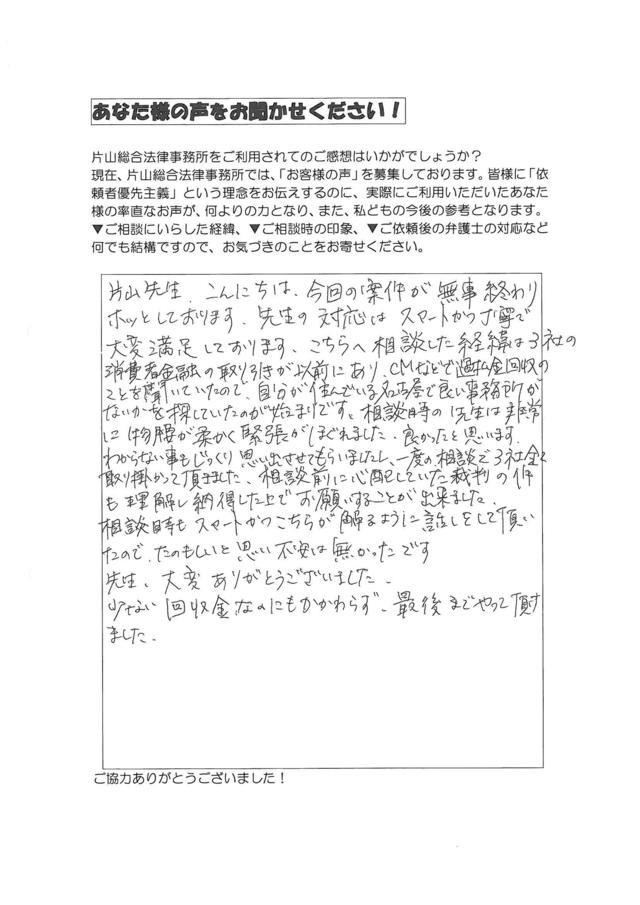 あなた様の声をお聞かせください！
片山総合法律事務所をご利用されてのご感想はいかがでしょうか？
現在、片山総合法律事務所では、「お客様の声」を募集しております。皆様に「依
頼者優先主義」という理念をお伝えするのに、実際にご利用いただいたあなた
様の率直なお声が、何よりの力となり、また、私どもの今後の参考となります。
▼ご相談にいらした経緯、▼ご相談時の印象、▼ご依頼後の弁護士の対応など
何でも結構ですので、お気づきのことをお寄せください。
片山先生、こんにちは、今回の案件が無事終わり
ホッとしております。先生の対応はスマートかつ丁寧で
大変満足しております。こちらへ相談した経緯は3社の
消費者金融の取り引きが以前にあり、CMなどで過払金回収の
ことを聞いていたので、自分が住んでいる名古屋で良い事務所が
ないかを探していたのが始まりです。相談時の先生は非常
に物腰が柔かく緊張がほぐれました。良かったと思います。
わからない事もじっくり思い出させてもらいましたし、一度の相談で3社全て
取り掛かって頂きました。相談前に心配していた裁判の件
も理解し納得した上でお願いすることが出来ました。
相談時もスマートかつこちらが解るように話しをして頂い
たので、たのもしいと思い不安は無かったです
先生、大変ありがとうございました。
少ない回収金なのにもかかわらず、最後までやって頂き
ました。
ご協力ありがとうございました！